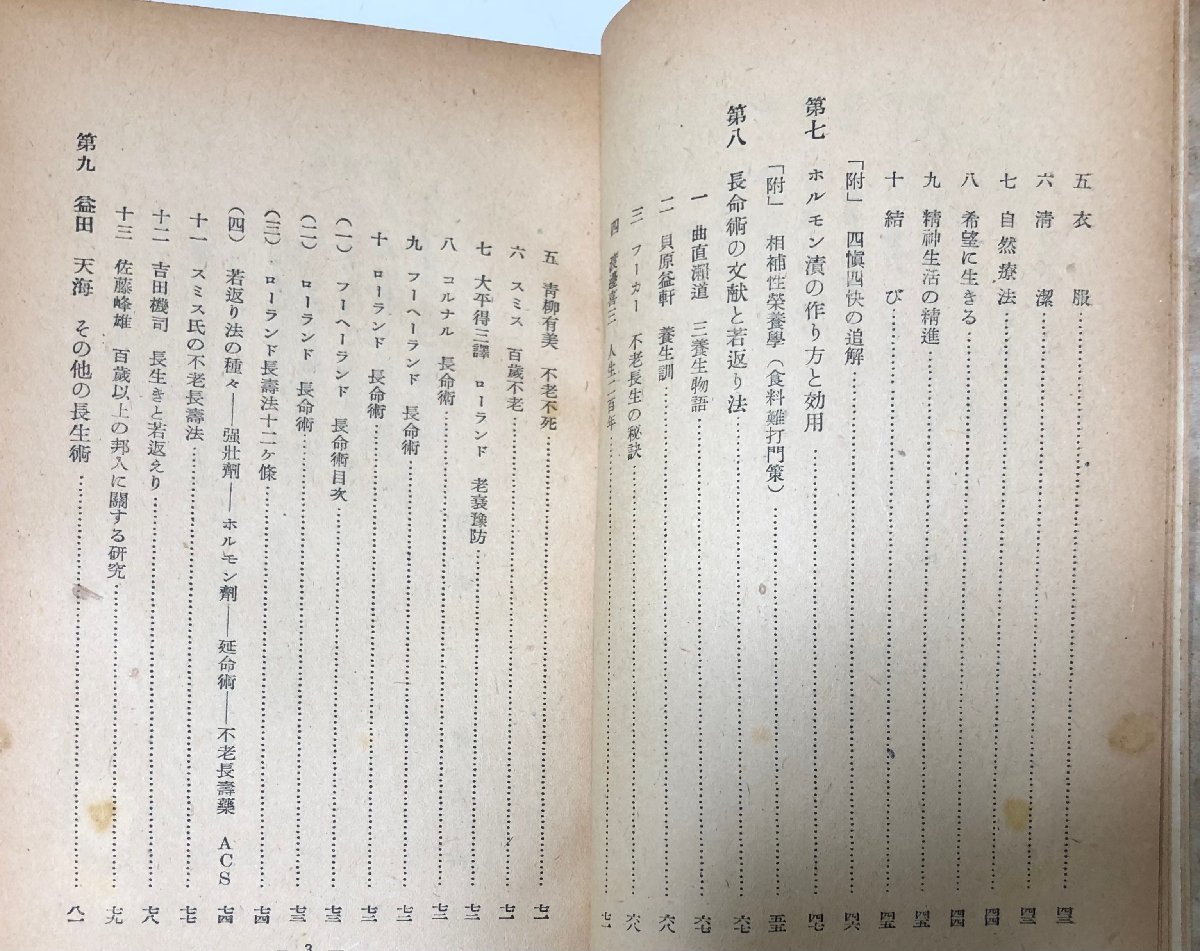 五 衣服…四三
六 清潔…四三
七 自然療法…四四
八 希望に生きる…四四
九 精神生活の精進…四五
十 結び…四五
「附」 四愼四快の追解…四六
第七 ホルモン漬の作り方と効用…四七
「附」 相補性榮養學(食料難打門策)…五五
第八 長命術の文献と若返り法…六七
一 曲直瀨道 三養生物語…六七
二 貝原益軒 養生訓…六八
三 フーカー 不老長生の秘訣…六八
四 喜三 人生二百年…七一
五 靑柳有美 不老不死…七一
六 スミス 百歲不老…七一
七 大平得三譯 ローランド 老衰豫防…七二
八 コルナル 長命術…七三
九 フーヘーランド 長命術…七三
十 ローランド 長命術…七三
(一) フーヘーランド 長命術目次…七三
(二) ローランド 長命術…七三
(三) ローランド長壽法十二ヶ條…七四
(四) 若返り法の種々――强壯劑――ホルモン劑――延命術――不老長壽藥 ACS…七四
十一 スミス氏の不老長壽法…七七
十二 吉田機司 長生きと若返えり…七八
十三 佐藤峰雄 百歲以上の邦人に關する硏究…七九
第九 益田 天海 その他の長生術…八一
3